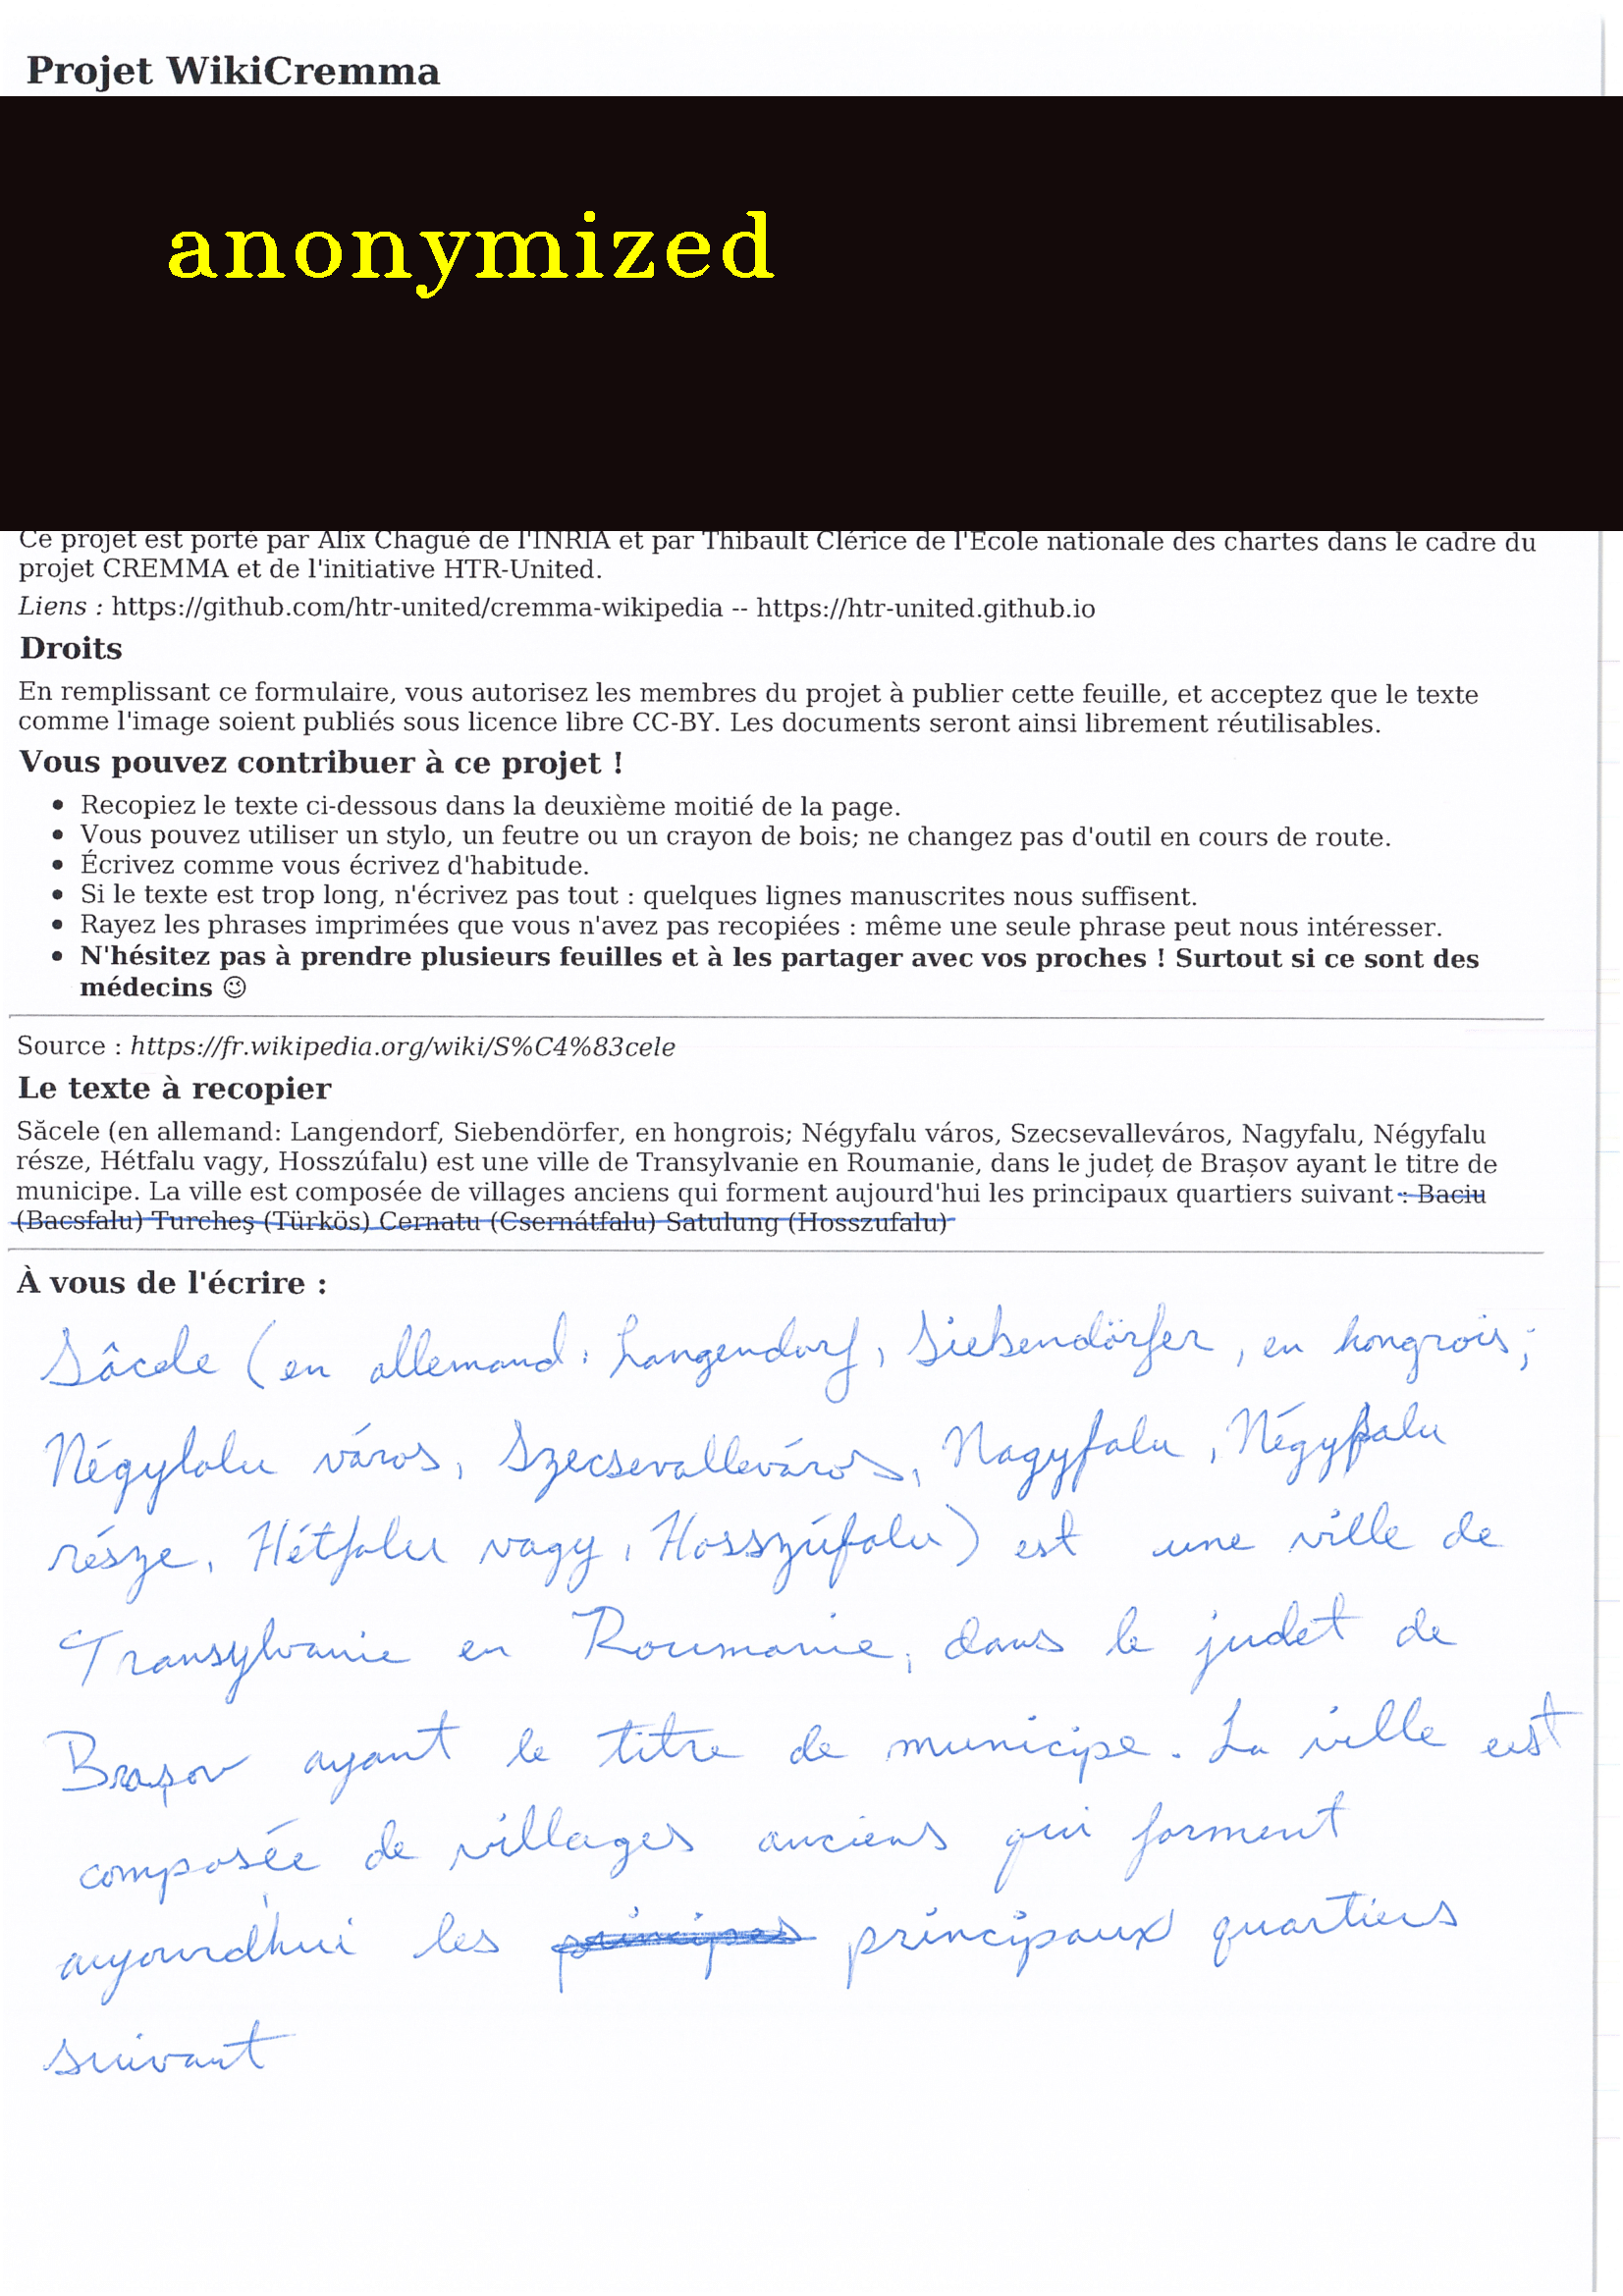 Projet WikiCremma
anonymized
Ce projet est porté par Alix Chagué de l'INRIA et par Thibault Clérice de l'École nationale des chartes dans le cadre du
projet CREMMA et de l'initiative HTR-United.
Liens : https://github.com/htr-united/cremma-wikipedia -- https://htr-united.github.io
Droits
En remplissant ce formulaire, vous autorisez les membres du projet à publier cette feuille, et acceptez que le texte
comme l'image soient publiés sous licence libre CC-BY. Les documents seront ainsi librement réutilisables.
Vous pouvez contribuer à ce projet !
• Recopiez le texte ci-dessous dans la deuxième moitié de la page.
• Vous pouvez utiliser un stylo, un feutre ou un crayon de bois; ne changez pas d'outil en cours de route.
• Écrivez comme vous écrivez d'habitude.
• Si le texte est trop long, n'écrivez pas tout : quelques lignes manuscrites nous suffisent.
• Rayez les phrases imprimées que vous n'avez pas recopiées : même une seule phrase peut nous intéresser.
• N'hésitez pas à prendre plusieurs feuilles et à les partager avec vos proches ! Surtout si ce sont des
médecins 😉
Source : https://fr.wikipedia.org/wiki/S%C4%83cele
Le texte à recopier
Săcele (en allemand: Langendorf, Siebendörfer, en hongrois; Négyfalu város, Szecsevalleváros, Nagyfalu, Négyfalu
része, Hétfalu vagy, Hosszúfalu) est une ville de Transylvanie en Roumanie, dans le județ de Brașov ayant le titre de
municipe. La ville est composée de villages anciens qui forment aujourd'hui les principaux quartiers suivant : Baciu
(Bacsfalu) Turcheş (Türkös) Cernatu (Csernátfalu) Satulung (Hosszufalu)
À vous de l'écrire :
Sâcele (en allemand : Langendorf, Siebendörfer, en hongrois;
Négyfalu város, Szecsevalleváros, Nagyfalu, Négyfalu
része, Hétfalu vagy, Hosszúfalu) est une ville de
Transylvanie en Roumanie, dans le judet de
Braşov ayant le titre de municipe. La ville est
composée de villages anciens qui forment
aujourd'hui les principes principaux quartiers
suivant